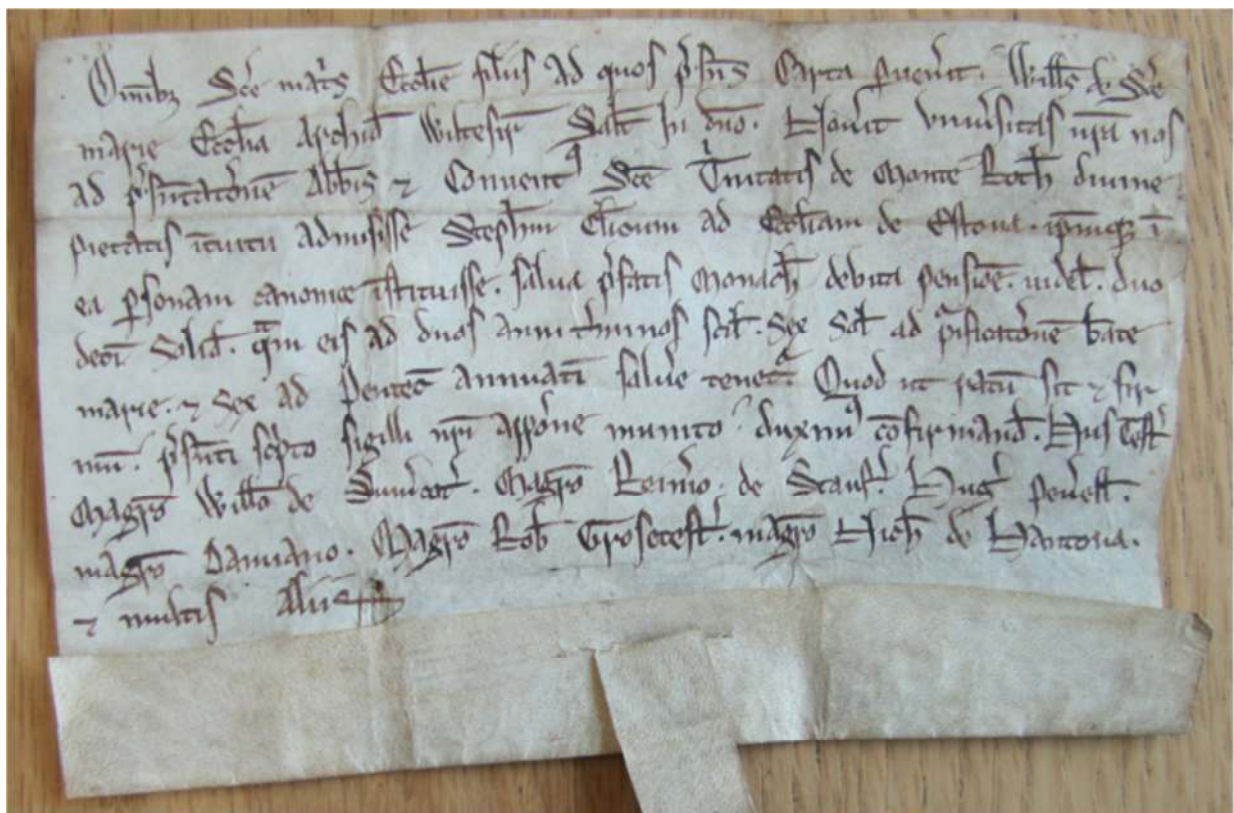 Omībꝫ Sc̄e mat̓s Ecc̄lie filiis ad quos p̓sens Carta ꝑuen̓it. Will̓s de Sc̄e
marie Ecc̄lia Archid̄ Wiltesir̓ Sal̄t in dn̄o. Nou̓it vniu̓sitas ur̄a nos
ad p̓sentac̓onē Abb̄is ⁊ Conuentꝰ Sc̄e T̓nitatis de Monte Roth̄ diuine
pietatis ītuitu admisisse Steph̄m Cl̄icum ad Ecc̄liam de Estona. ip̄mqꝫ ī
ea ꝑsonam canonice īstituisse. salua p̓fatis Monach̄ debita pensiōe. uidel̄. duo
deci Solid̄. qm̄ eis ad duos anni t̓minos scil̄. Sex Sol̄ ad p̓ificac̓onē b̄ate
marie. ⁊ Sex ad Pentec̄ annuatī salu̓e tenet̓. Quod ut ratū sit ⁊ fir
mū. p̓senti sc̓pto sigilli nr̄i app̓one munito duximꝰ c̄ofirmand̄. Hiis Test̓.
Magr̄o Will̄o de . Magr̄o Rein̓io. de Stanf̓. Hug̓ peu̓ell̄.
magr̄o Damiano. Magr̄o Rob̄ Grosetest̓. magr̄o Nich̄ de Hantona.
⁊ multis Aliis